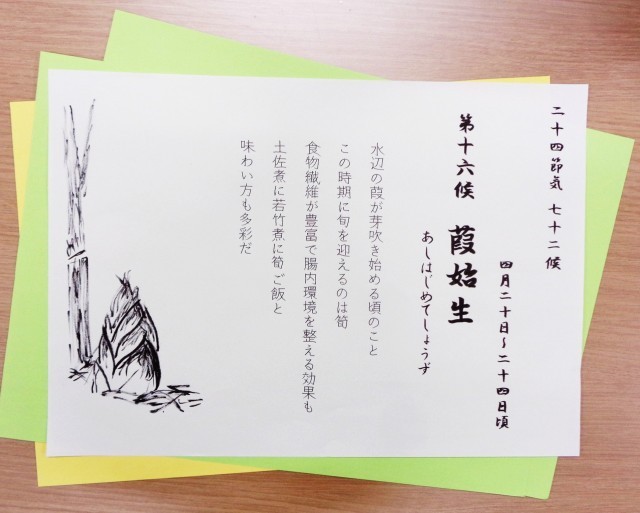 二十四節気 七十二候
四月二十日～二十四日頃
第十六候 葭始生
あしはじめてしょうず
水辺の葭が芽吹き始める頃のこと
この時期に旬を迎えるのは筍
食物繊維が豊富で腸内環境を整える効果も
土佐煮に若竹煮に筍ご飯と
味わい方も多彩だ